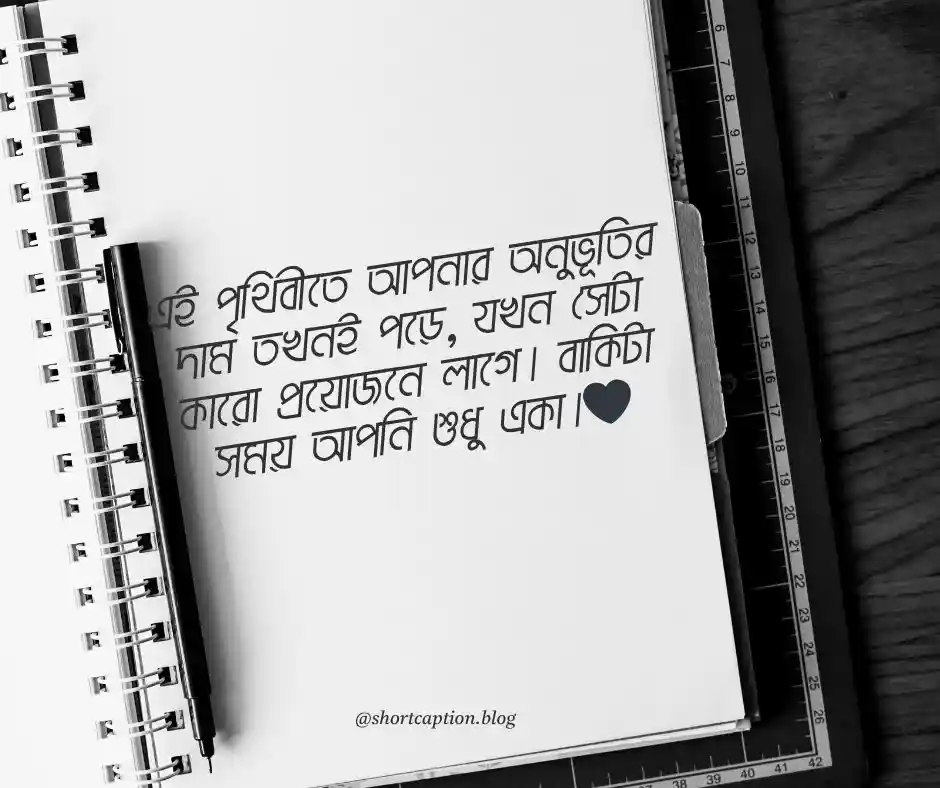 এই পৃথিবীতে আপনার অনুভূতির
দাম তখনই পড়ে, যখন সেটা
কারো প্রয়োজনে লাগে। বাকিটা
সময় আপনি শুধু একা।🖤
@shortcaption.blog
6
7
8
9
10
11
12
13
14
15
16
17
18
19
20
21
22
23
24
25
26
37 38 39 40 41 42